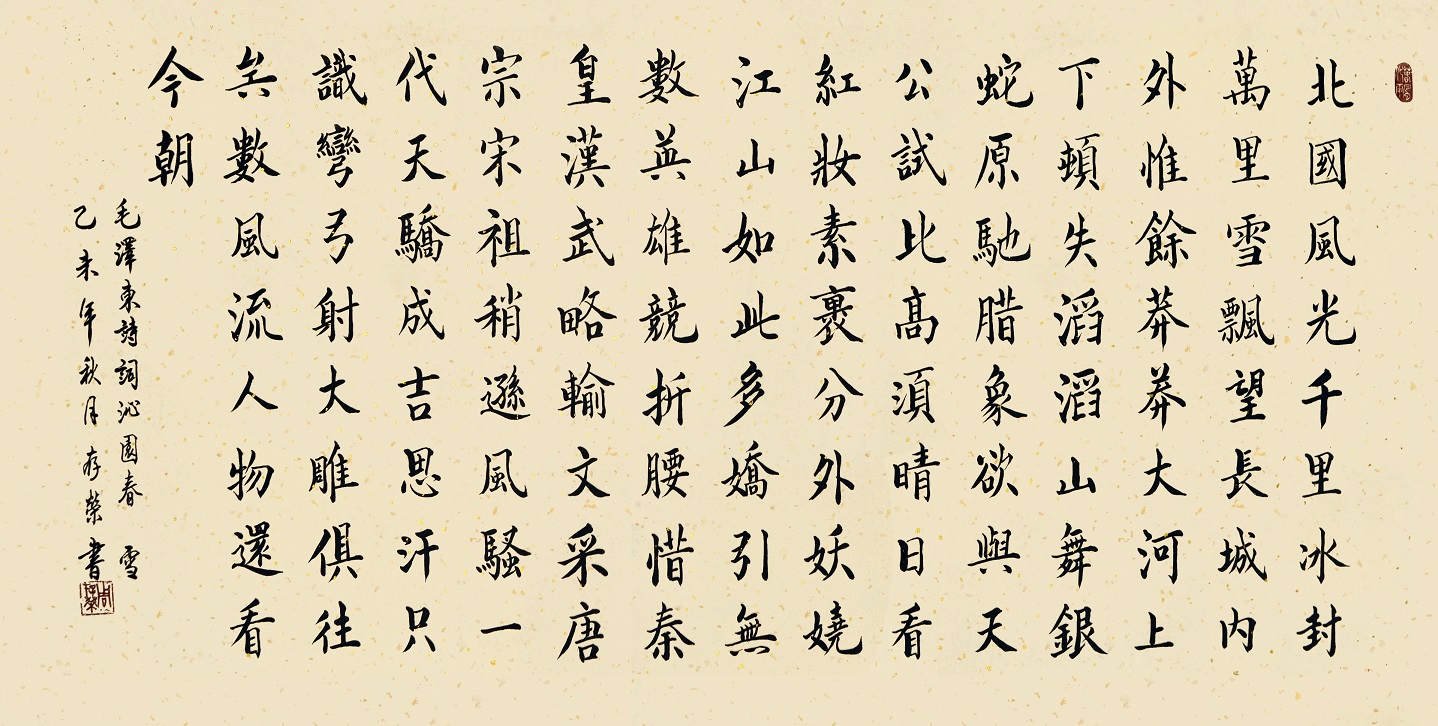 北國風光千里冰封
萬里雪飄望長城內
外惟餘莽莽大河上
下頓失滔滔山舞銀
蛇原馳腊象欲與天
公試比高須晴日看
紅妝素裹分外妖嬈
江山如此多嬌引無
數英雄競折腰惜秦
皇漢武略輸文采唐
宗宋祖稍遜風騷一
代天驕成吉思汗只
識彎弓射大雕俱往
矣數風流人物還看
今朝
毛澤東詩詞沁園春 雪
乙未年秋月存榮書